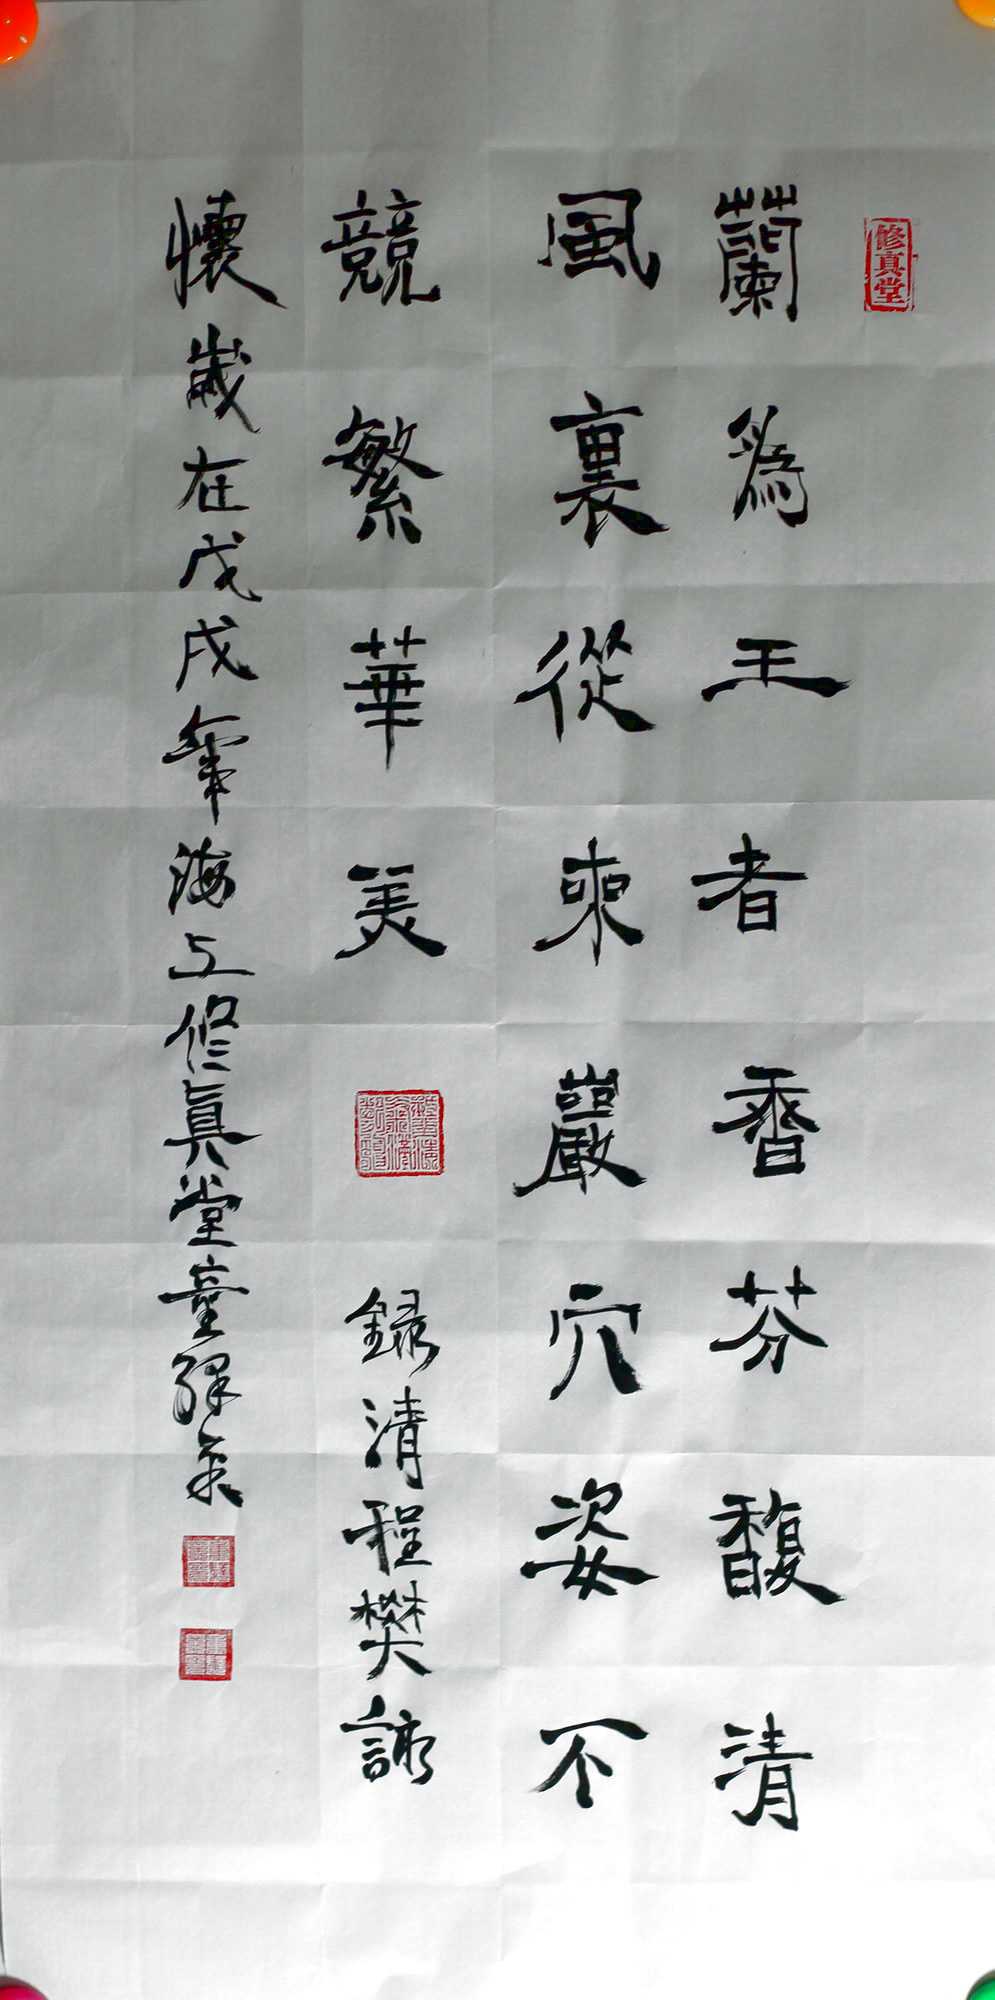 修真堂
蘭為王者香芬馥清
風裏從來巖穴姿不
競繁華美
録清程樊詠
懷歲在戊戌年海上修真堂童